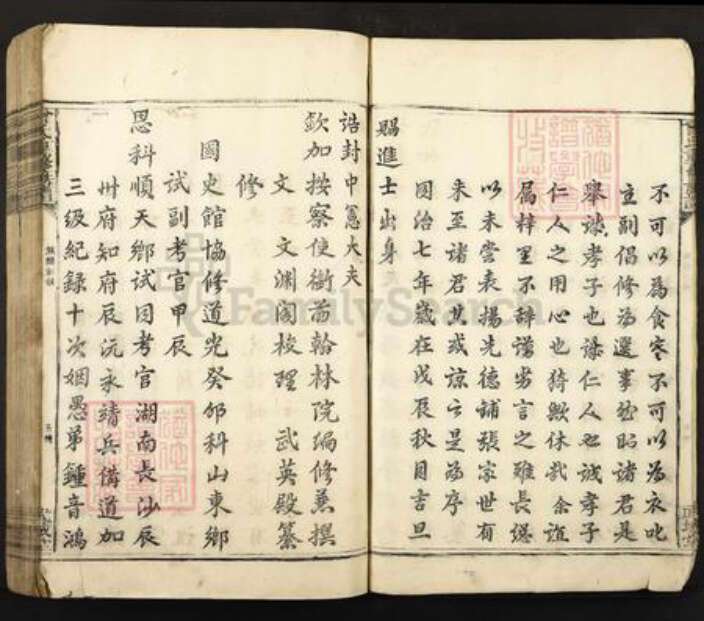 不可以為食寒不可以為衣叱
主副倡修為選事茲昭諸君是
舉誠孝子也諒仁人也誠孝子
仁人之用心也猗歟休哉余誼
属梓里不辭譾劣言之雖長縂
以未嘗表揚先德铺張家世有
来至諸君其或諒之是為序
同治七年歲在戊辰秋月吉旦
賜進士出身
誥封中憲大夫
欽加按察使銜前翰林院編修兼撰
文 文淵阁校理 武英殿纂
修
國史館協修道光癸卯科山東鄉
試副考官甲辰
恩科順天鄉試同考官湖南長沙辰
州府知府辰沅永靖兵備道加
三級紀録十次姻愚弟鍾音鴻
FamilySearch